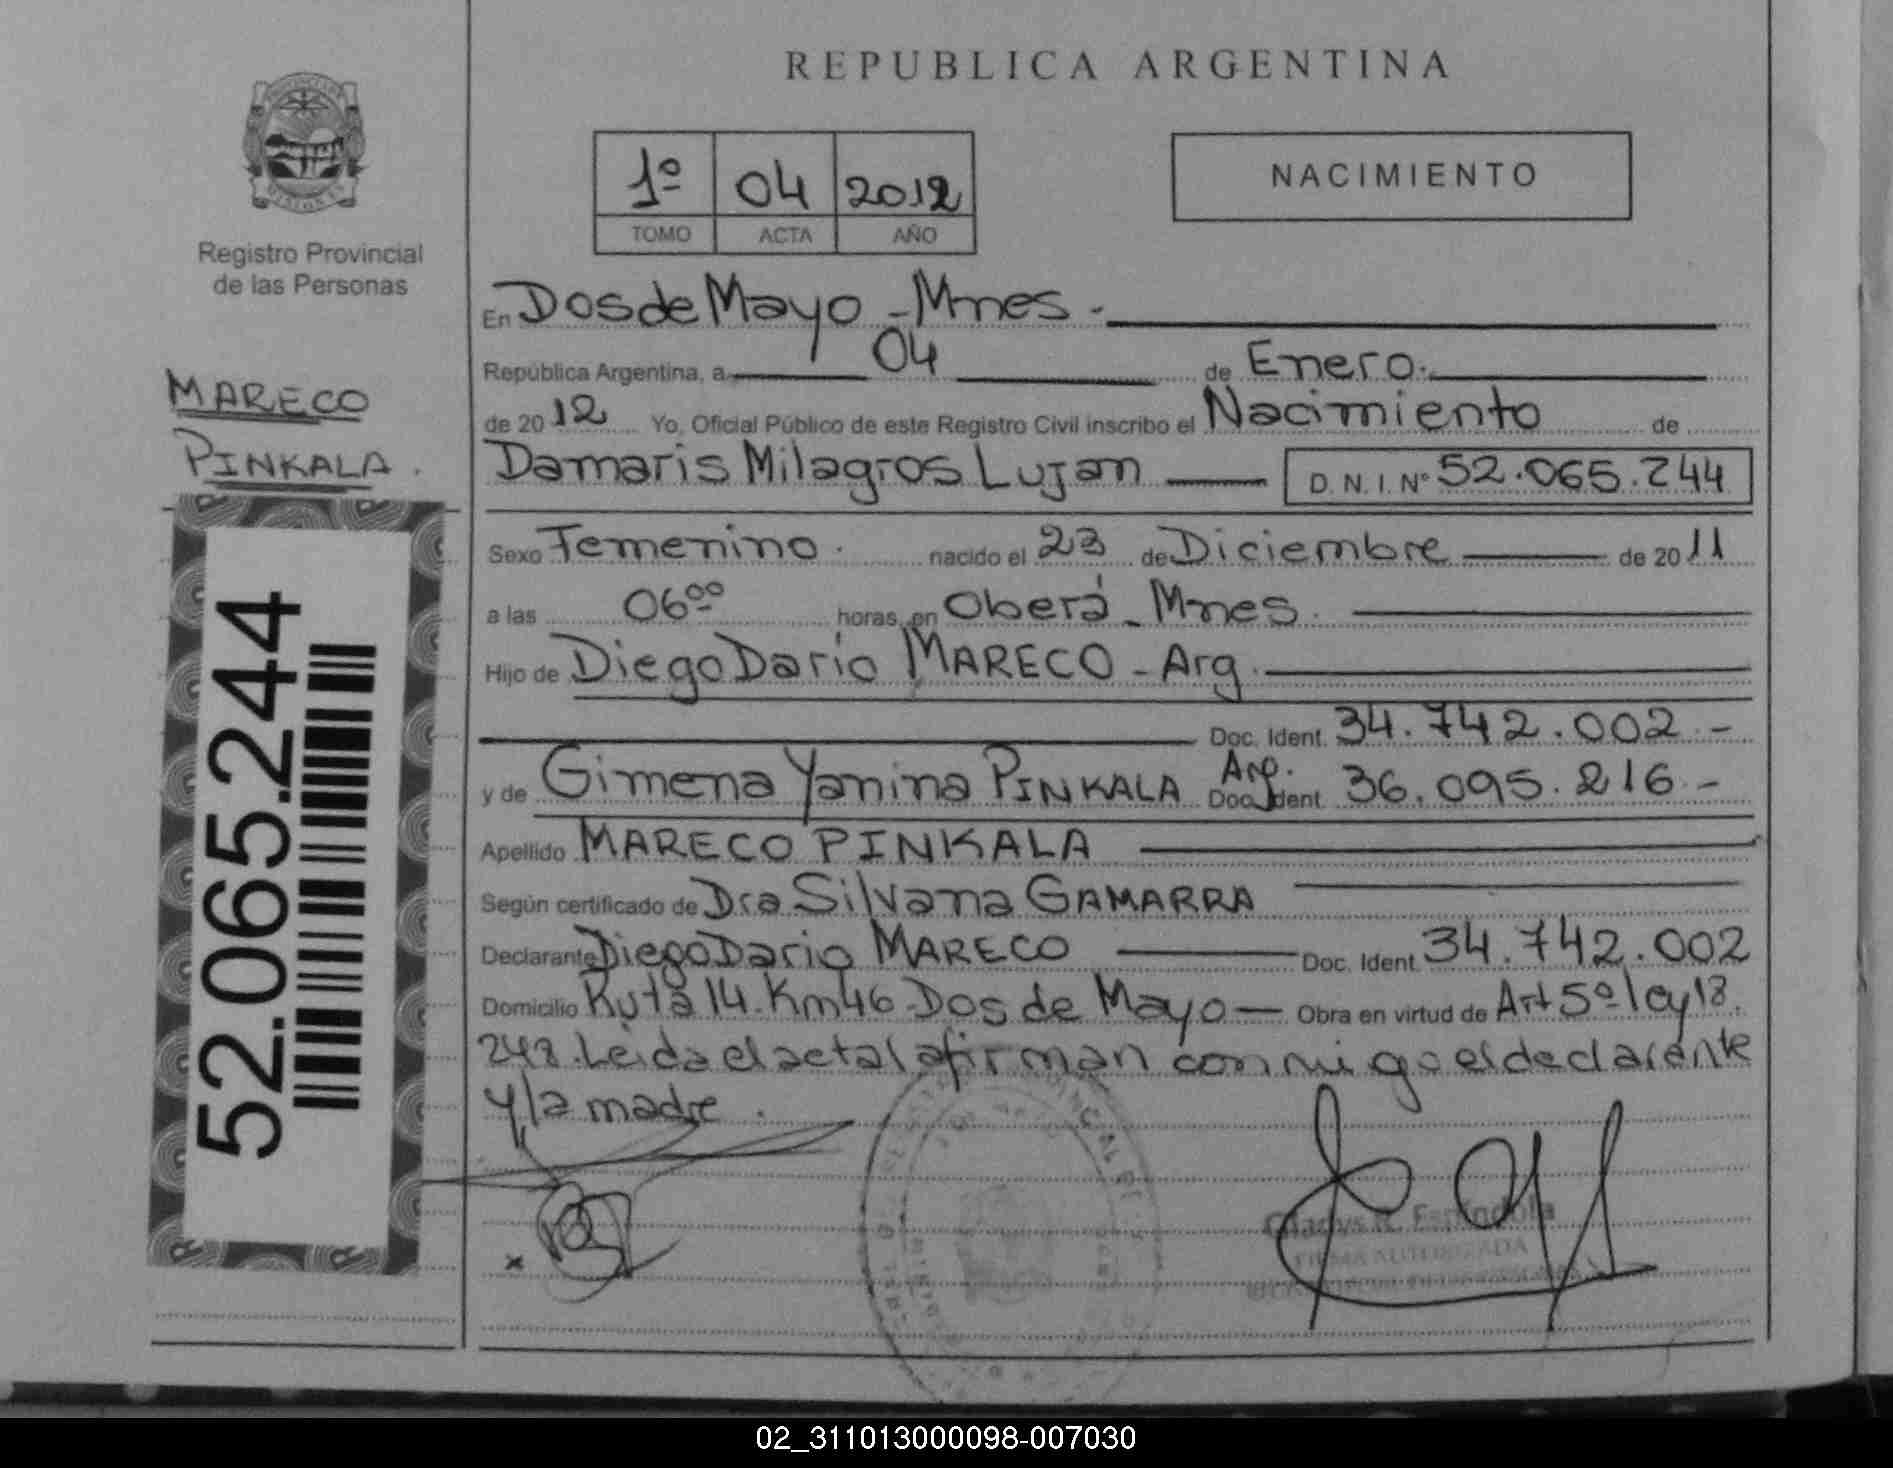 REPUBLICA ARGENTINA
1º 04 2012
TOMO ACTA AÑO
NACIMIENTO
Registro Provincial
de las Personas
MARECO
PINKALA.
52.065.244
En Dos de Mayo - Mnes.-
República Argentina, a 04 de Enero.
de 2012 Yo, Oficial Público de este Registro Civil inscribo el Nacimiento de
Damaris Milagros Lujan D. N. I. Nº 52.065.244
Sexo Femenino. nacido el 23 de Diciembre de 2011
a las 06 00 horas, en Oberá - Mnes.
Hijo de Diego Dario MARECO - Arg.
Doc. Ident. 34.742.002.-
y de Gimena Yanina PINKALA Arg. Doc. Ident. 36.095.216.-
Apellido MARECO PINKALA
Según certificado de Dra Silvana GAMARRA
Declarante Diego Dario MARECO Doc. Ident. 34.742.002
Domicilio Ruta 14. Km 46 - Dos de Mayo — Obra en virtud de Art 5º ley 18.
248. Leida el acta la firman conmigo el declarante
y la madre.
Gladys R. Espíndola
FIRMA AUTORIZADA
02_311013000098-007030